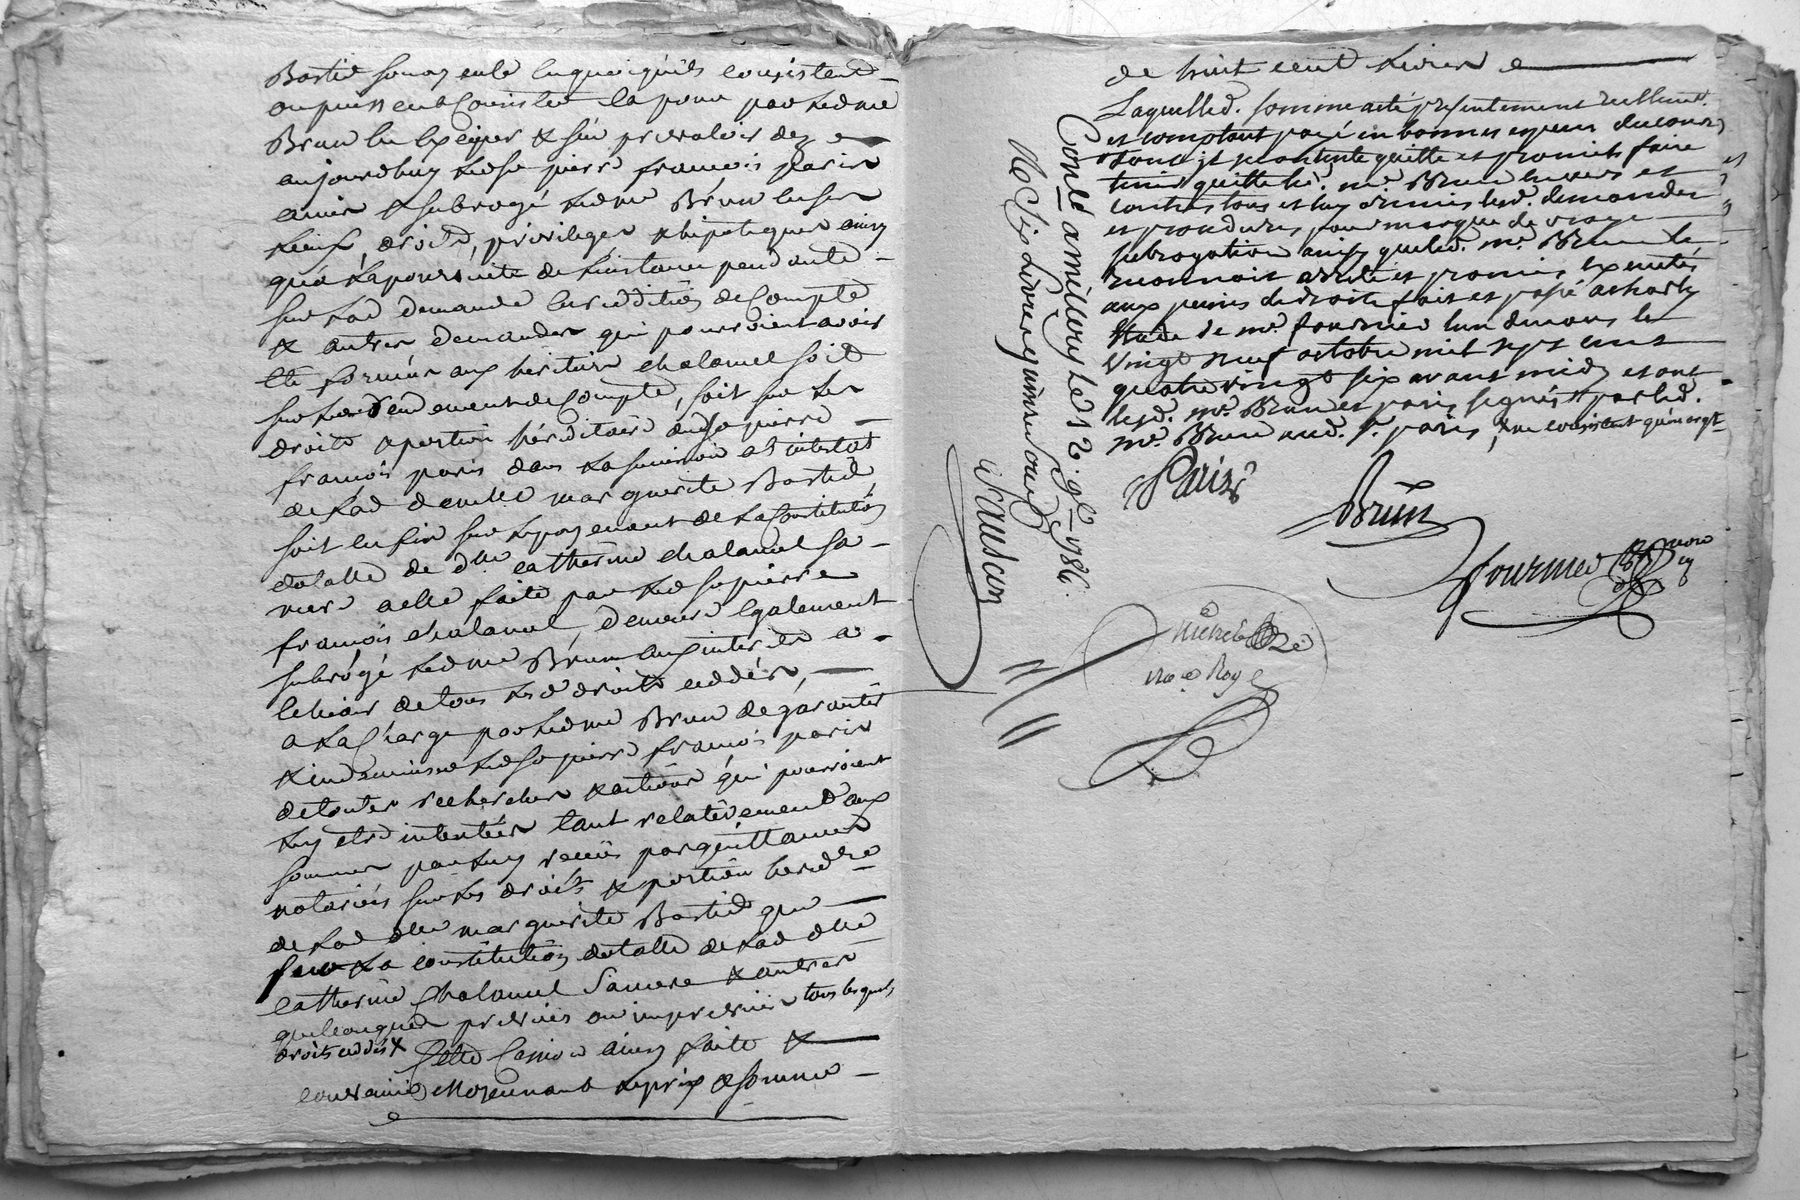 Bastid sa mere enquoiqu'ils consistent
ou puissent consister la pour par led me
Brun les exiger & s'en prevaloir dez
aujourdhuy led sr pierre francois paris
ayant subrogé led me Brun en ses
lieux, droits, privileges & hipoteques ainsy
qu'a la poursuite de linstance pendante
sur lad demande en reddition de Compte
& autres demandes qui pourroient avoir
eté formées aux heritiers chalamel soit
sur led rendement de Compte, soit sur les
droits & portion héréditaire dud sr pierre
francois paris dans la succession ab intestat
de lad demlle marguerite Bastid
soit enfin sur le payement de la Constitution
dotalle de dlle catherine chalamel sa
mere a elle faite par led sr pierre
francois chalamel, demeure Egalement
subrogé led me Brun aux interets a
echeoir de tous lesd droits ceddés,
a la charge par led me Brun de garantir
& indemniser led sr pierre francois paris
de toutes recherches & actions qui pourroient
luy etre intentées tant relativement aux
sommes par luy recues par quittances
notariées sur les droits & portion heredre
de lad dlle marguerite Bastid que
sur la constitution dotalle de lad dlle
catherine Chalamel sa mere & autres
quelconques prevues ou imprevues tous lesquels
droits ceddés & Cette Cession ainsy faite &
convenue Moyennant le prix & somme
de huit cent livres
Laquelle d. somme a eté presentement reellement
et comptant payé en bonnes especes du cours
dont il se contente quitte et promet faire
tenir quitte led. me. Brun envers et
contre tous et luy a remis lesd. demandes
et procedures pour marque de vraye
subrogation ainsy que led. me. Brun le
reconnoit arreté et promis executés
aux peines de droits fait et passé a charly
etude de me. fournier lun de nous le
vingt neuf octobre mil sept cent
quatre vingt six avant midy et ont
lesd. me. Brun et paris signés
me. Brun aud. sr. paris,
Paris
Brun
fournier
Conle a mellroy Le 12. 9bre 1786.
Rs Six Livres quinze sous
Sausan
nre Royl